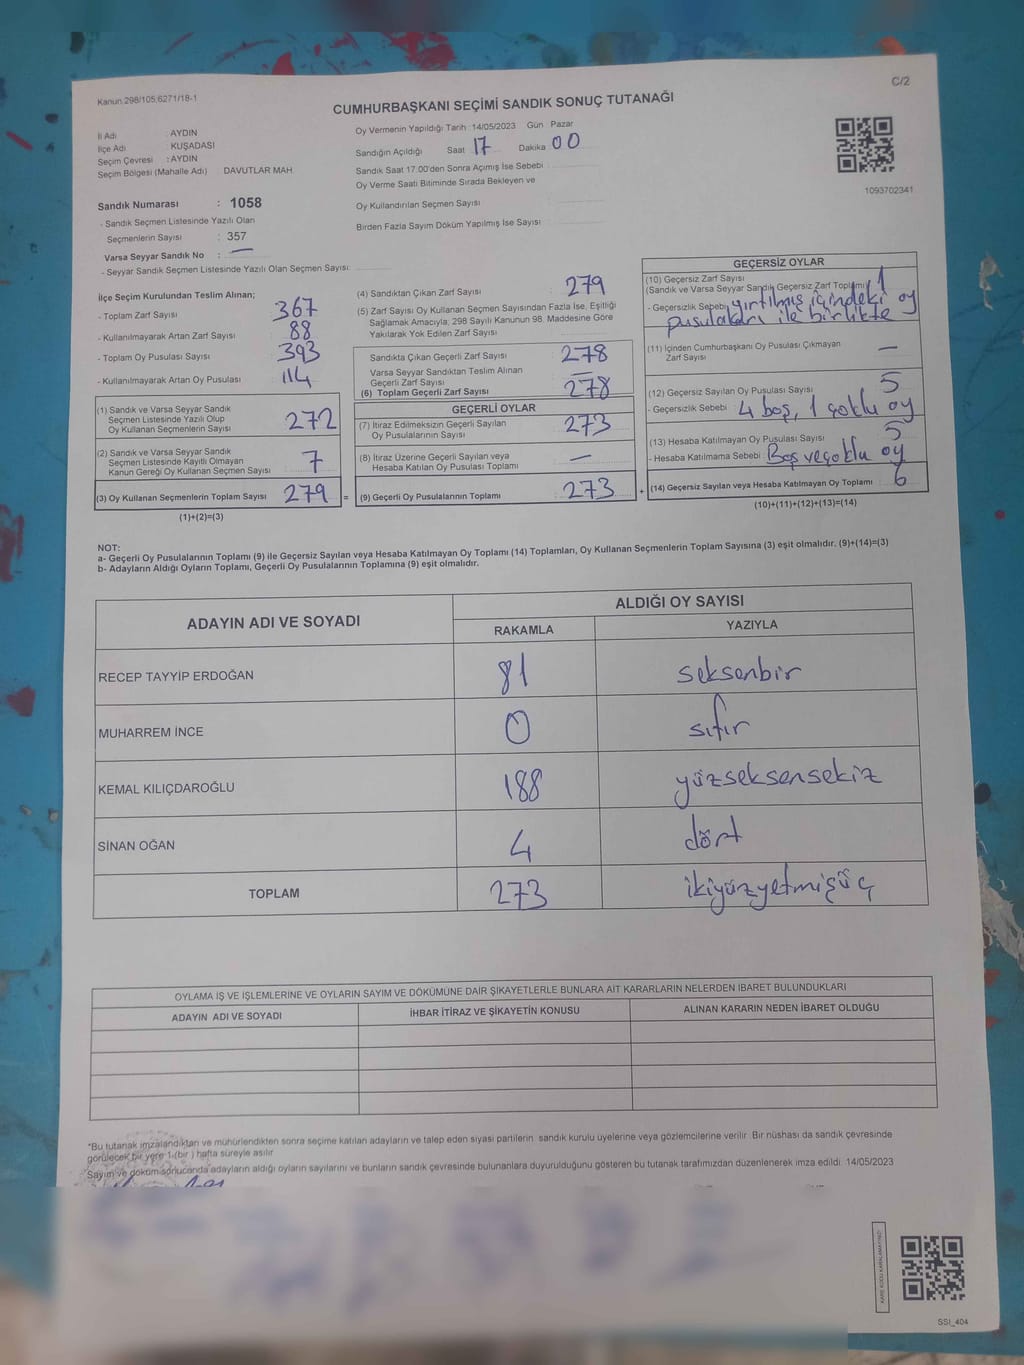 Kanun.298/105,6271/18-1
C/2
CUMHURBAŞKANI SEÇİMİ SANDIK SONUÇ TUTANAĞI
İl Adı : AYDIN
İlçe Adı : KUŞADASI
Seçim Çevresi : AYDIN
Seçim Bölgesi (Mahalle Adı) : DAVUTLAR MAH.
Oy Vermenin Yapıldığı Tarih : 14/05/2023 Gün Pazar
Sandığın Açıldığı Saat 17 Dakika 00
Sandık Saat 17:00'den Sonra Açımış İse Sebebi
Oy Verme Saati Bitiminde Sırada Bekleyen ve
Oy Kullandırılan Seçmen Sayısı
Birden Fazla Sayım Döküm Yapılmış İse Sayısı
1093702341
Sandık Numarası : 1058
- Sandık Seçmen Listesinde Yazılı Olan
Seçmenlerin Sayısı : 357
Varsa Seyyar Sandık No : —
- Seyyar Sandık Seçmen Listesinde Yazılı Olan Seçmen Sayısı:
İlçe Seçim Kurulundan Teslim Alınan;
- Toplam Zarf Sayısı 367
- Kullanılmayarak Artan Zarf Sayısı 88
- Toplam Oy Pusulası Sayısı 393
- Kullanılmayarak Artan Oy Pusulası 114
(1) Sandık ve Varsa Seyyar Sandık
Seçmen Listesinde Yazılı Olup
Oy Kullanan Seçmenlerin Sayısı 272
(2) Sandık ve Varsa Seyyar Sandık
Seçmen Listesinde Kayıtlı Olmayan
Kanun Gereği Oy Kullanan Seçmen Sayısı 7
(3) Oy Kullanan Seçmenlerin Toplam Sayısı 279 =
(1)+(2)=(3)
(4) Sandıktan Çıkan Zarf Sayısı 279
(5) Zarf Sayısı Oy Kullanan Seçmen Sayısından Fazla İse, Eşitliği
Sağlamak Amacıyla, 298 Sayılı Kanunun 98. Maddesine Göre
Yakılarak Yok Edilen Zarf Sayısı
Sandıkta Çıkan Geçerli Zarf Sayısı 278
Varsa Seyyar Sandıktan Teslim Alınan
Geçerli Zarf Sayısı —
(6) Toplam Geçerli Zarf Sayısı 278
GEÇERLİ OYLAR
(7) İtiraz Edilmeksizin Geçerli Sayılan
Oy Pusulalarının Sayısı 273
(8) İtiraz Üzerine Geçerli Sayılan veya
Hesaba Katılan Oy Pusulası Toplamı —
(9) Geçerli Oy Pusulalarının Toplamı 273 +
GEÇERSİZ OYLAR
(10) Geçersiz Zarf Sayısı
(Sandık ve Varsa Seyyar Sandık Geçersiz Zarf Toplamı) 1
- Geçersizlik Sebebi yırtılmış içindeki oy
pusulaları ile birlikte
(11) İçinden Cumhurbaşkanı Oy Pusulası Çıkmayan
Zarf Sayısı —
(12) Geçersiz Sayılan Oy Pusulası Sayısı 5
- Geçersizlik Sebebi 4 boş, 1 çoklu oy
(13) Hesaba Katılmayan Oy Pusulası Sayısı 5
- Hesaba Katılmama Sebebi : Boş ve çoklu oy
(14) Geçersiz Sayılan veya Hesaba Katılmayan Oy Toplamı : 6
(10)+(11)+(12)+(13)=(14)
NOT:
a- Geçerli Oy Pusulalarının Toplamı (9) ile Geçersiz Sayılan veya Hesaba Katılmayan Oy Toplamı (14) Toplamları, Oy Kullanan Seçmenlerin Toplam Sayısına (3) eşit olmalıdır. (9)+(14)=(3)
b- Adayların Aldığı Oyların Toplamı, Geçerli Oy Pusulalarının Toplamına (9) eşit olmalıdır.
ADAYIN ADI VE SOYADI
ALDIĞI OY SAYISI
RAKAMLA YAZIYLA
RECEP TAYYİP ERDOĞAN 81 seksenbir
MUHARREM İNCE 0 sıfır
KEMAL KILIÇDAROĞLU 188 yüzseksensekiz
SİNAN OĞAN 4 dört
TOPLAM 273 ikiyüzyetmişüç
OYLAMA İŞ VE İŞLEMLERİNE VE OYLARIN SAYIM VE DÖKÜMÜNE DAİR ŞİKAYETLERLE BUNLARA AİT KARARLARIN NELERDEN İBARET BULUNDUKLARI
ADAYIN ADI VE SOYADI İHBAR İTİRAZ VE ŞİKAYETİN KONUSU ALINAN KARARIN NEDEN İBARET OLDUĞU
*Bu tutanak imzalandıktan ve mühürlendikten sonra seçime katılan adayların ve talep eden siyasi partilerin sandık kurulu üyelerine veya gözlemcilerine verilir. Bir nüshası da sandık çevresinde
görülecek bir yere 1 (bir ) hafta süreyle asılır
*Sayım ve döküm sonucunda adayların aldığı oyların sayılarını ve bunların sandık çevresinde bulunanlara duyurulduğunu gösteren bu tutanak tarafımızdan düzenlenerek imza edildi. 14/05/2023
KARE KODU KARALAMAYINIZ!
SSI_404